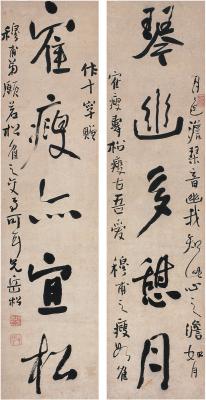 月色澹琴音幽我知心之澹如月
琴幽多憩月
隺瘦壽松瘦古吾愛穆甫之瘦如隺
作十字贈
隺瘦亦宜松
穆甫弟願若松隺之交可耳兄岳松